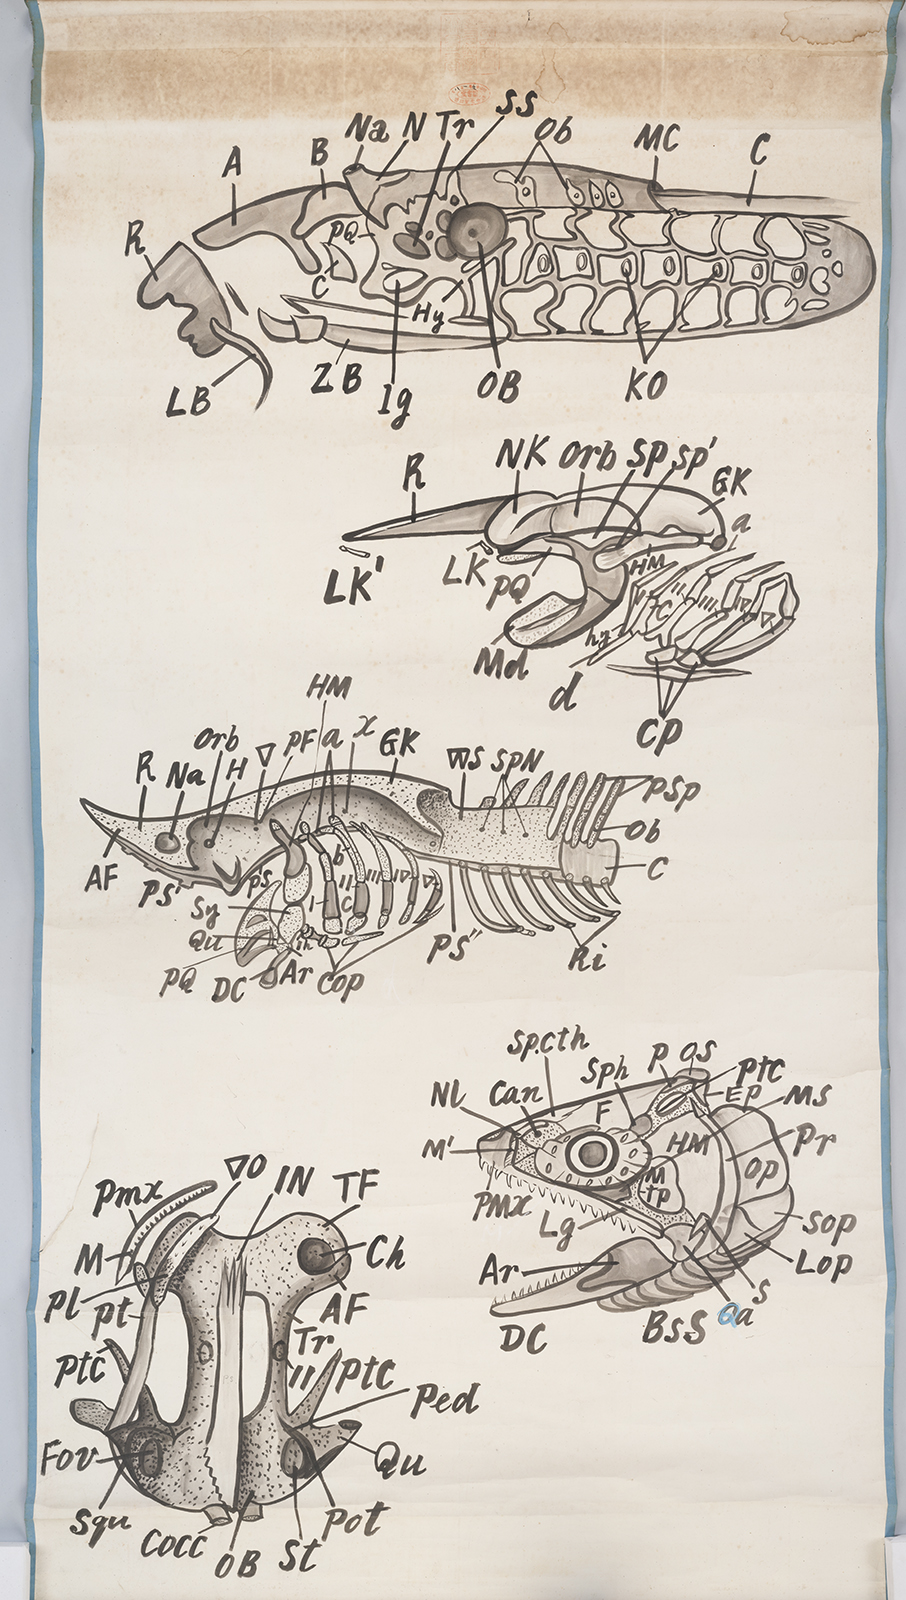 SS
Na N Tr Ob MC C
A B
R PQ
C Hy
LB ZB Ig OB KO
R NK Orb Sp Sp' GK
a
LK' LK PQ HM
II C III IV V
hy
Md d
Cp
HM
Orb H V PF a x GK
R Na WS SPN PSp
Ob
AF PS' PS b C
I II III IV V
Sy C
Qu ih
PQ DC Ar Cop PS" Ri
Sp.cth
Nl Can Sph P OS Ptc
EP MS
M' F HM Pr
M tp Op
PMX Lg Sop
Ar Lop
DC BsS Qa S
Pmx VO IN TF
M Ch
Pl Pt AF
Ptc Tr
II Ptc
Ped
Fov Qu
Squ Cocc OB St Pot